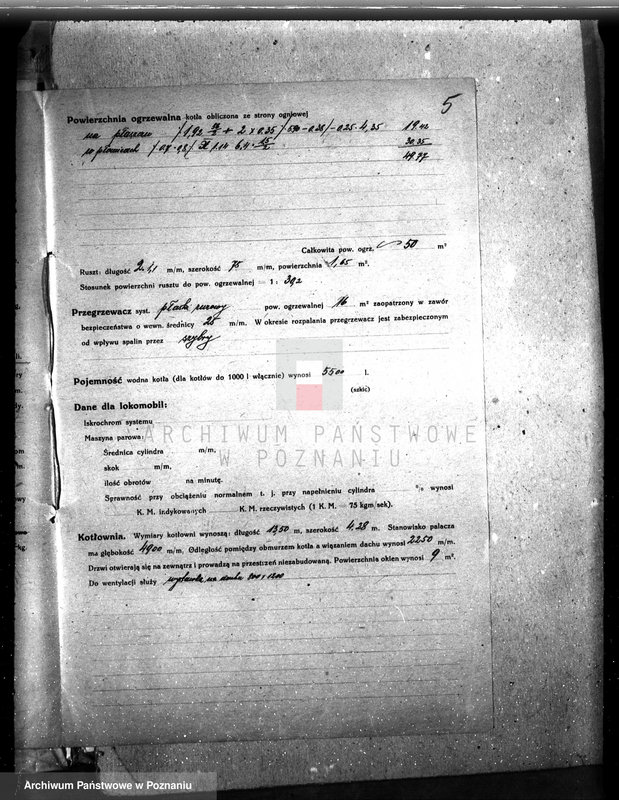 5
Powierzchnia ogrzewalna kotła obliczona ze strony ogniowej
na płaszczu 19.42
w płomicach 30,35
49.77
Całkowita pow. ogrz. 50 m²
Ruszt: długość 2,41 m/m, szerokość 75 m/m, powierzchnia 1,65 m².
Stosunek powierzchni rusztu do pow. ogrzewalnej — 1 : 30,2
Przegrzewacz syst. pow. ogrzewalnej 16 m² zaopatrzony w zawór
bezpieczeństwa o wewn. średnicy 25 m/m. W okresie rozpalania przegrzewacz jest zabezpieczony
od wpływu spalin przez szybry
Pojemność wodna kotła (dla kotłów do 1000 l włącznie) wynosi 5500 l.
(szkic)
Dane dla lokomobil:
Iskrochrom systemu
Maszyna parowa:
Średnica cylindra m/m,
skok m/m,
ilość obrotów na minutę.
Sprawność przy obciążeniu normalnem t. j. przy napełnieniu cylindra % wynosi
K. M. indykowanych K. M. rzeczywistych (1 K. M. — 75 kgm/sek).
Kotłownia. Wymiary kotłowni wynoszą: długość 13,50 m, szerokość 4,28 m. Stanowisko palacza
ma głębokość 4900 m/m, Odległość pomiędzy obmurzem kotła a wiązaniem dachu wynosi 2250 m/m.
Drzwi otwierają się na zewnątrz i prowadzą na przestrzeń niezabudowaną. Powierzchnia okien wynosi 9 m².
Do wentylacji służy
ARCHIWUM PAŃSTWOWE
W POZNANIU
Archiwum Państwowe w Poznaniu